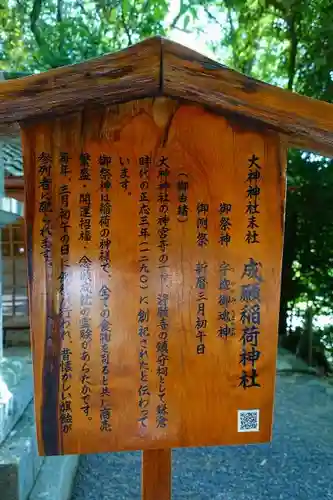 大神神社末社
成願稲荷神社
御祭神 宇迦御魂神
御例祭 新暦三月初午日
(御由緒)
大神神社の神宮寺の一つ浄願寺の鎮守社として鎌倉
時代の正応三年(一二九〇)に創祀されたと伝わって
います。
御祭神は稲荷の神様で、全ての食物を司ると共に商売
繁盛・開運招福・念願成就の霊験があらたかです。
毎年、三月初午の日に例祭が行われ、昔懐かしい旗飴が
参列者に配られます。